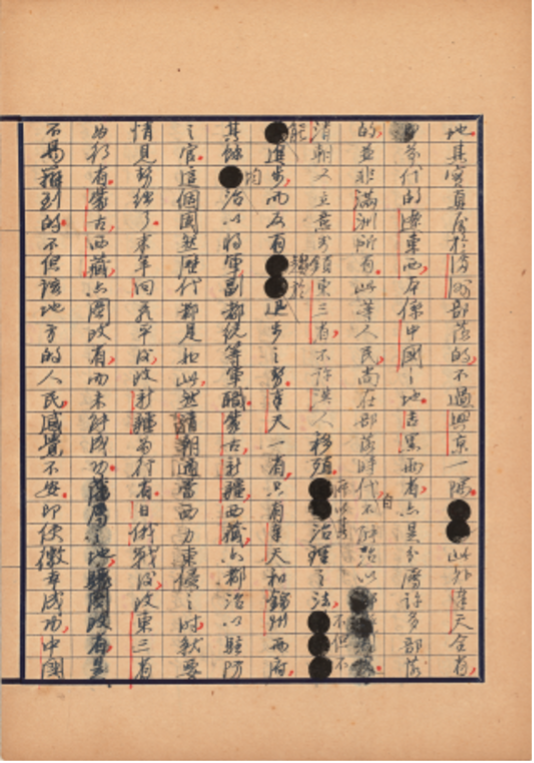 地。其實真屬於滿洲部落的，不過興京一隅。●●此外奉天全省，
●前代的遼東西，本係中國之地，吉黑兩省，亦是分屬許多部落
的，並非滿洲所有。此等人民，尚在部落時代，不能自治，以
清朝又立意封鎖東三省，不許漢人移殖，●所以其●治理之法，●不但不
能●進步，而反有●趨於●退步之勢。奉天一省，只有奉天和錦州兩府，
其餘●均治以將軍副都統等軍職。蒙古，新疆，西藏，亦都治以駐防
之官。這個固然歷代都是如此，然清朝適當西力東侵之時，就要
情見勢絀了。末年回亂平後，改新疆為行省。日俄戰後，改東三省
為行省。蒙古，西藏，亦圖改省，而未能成功。
不易辦到的。不但該地方的人民，感覺不安，即使徼幸成功，中國